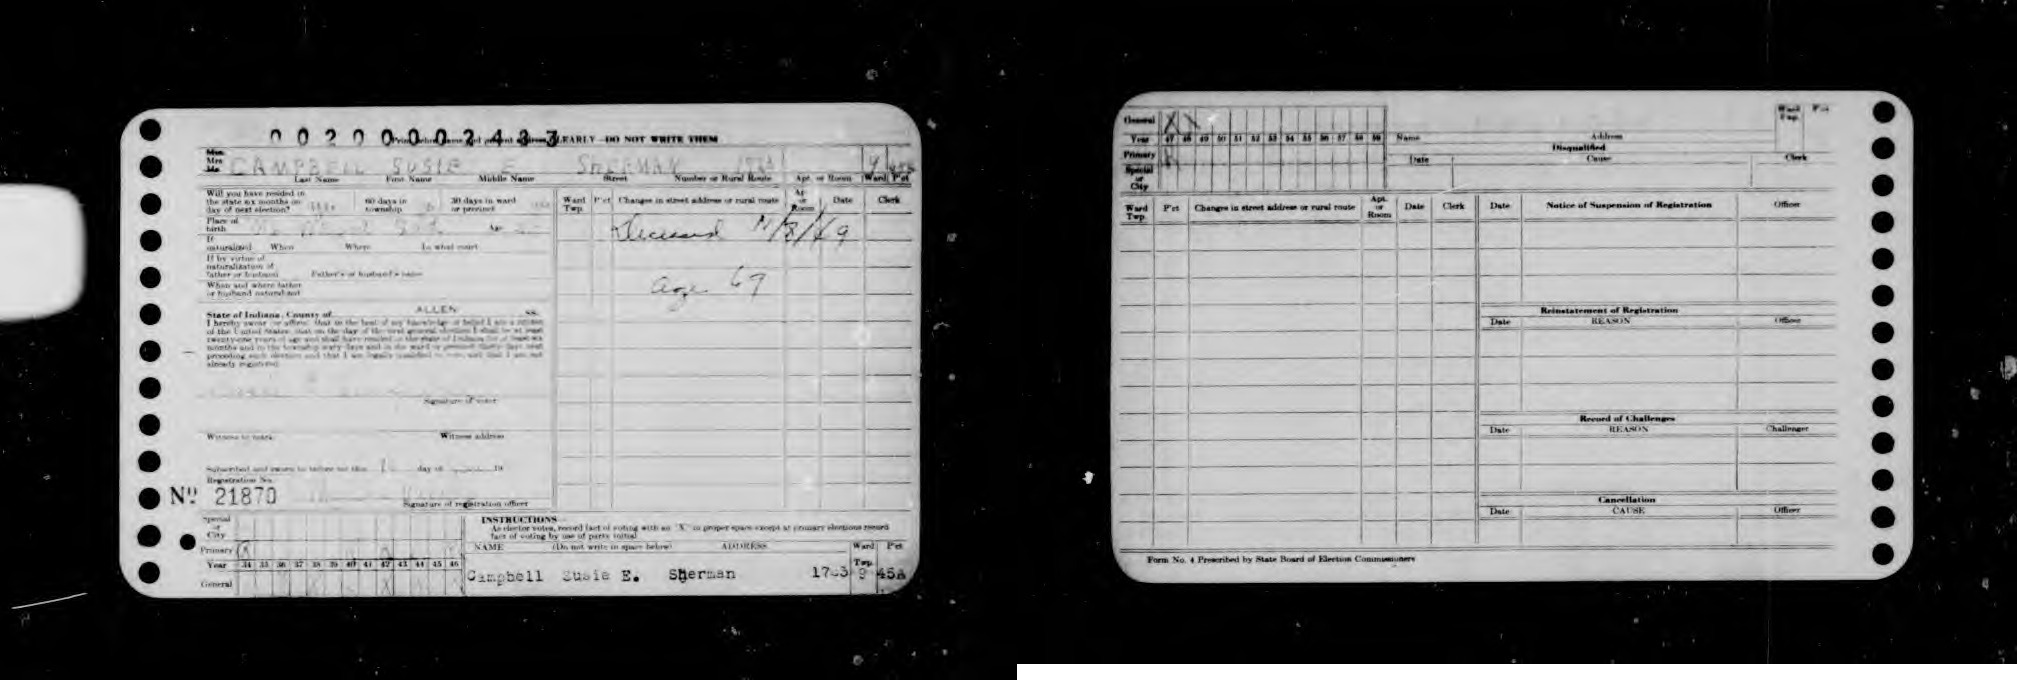 0 0 2 0 0 0 0 2 4 3 3
CLEARLY—DO NOT WRITE THEM
Miss
Mrs
Mr CAMPBELL SUSIE E SHERMAN 9
Last Name First Name Middle Name Street Number or Rural Route Apt. or Room Ward P'ct
Will you have resided in
the state six months on
day of next election?
60 days in
township
30 days in ward
or precinct
Place of
birth Age
If
naturalized When Where In what court
If by virtue of
naturalization of
father or husband Father's or husband's name
When and where father
or husband naturalized
State of Indiana, County of ALLEN ss.
I hereby swear (or affirm) that to the best of my knowledge or belief I am a citizen
of the United States; that on the day of the next general election I shall be at least
twenty-one years of age and shall have resided in the state of Indiana for at least six
months and in the township sixty days and in the ward or precinct thirty days next
preceding such election and that I am legally qualified to vote, and that I am not
already registered.
Signature of voter
Witness to mark Witness address
Subscribed and sworn to before me this day of 19
Registration No.
Nº 21870
Signature of registration officer
Ward
Twp. P'ct Changes in street address or rural route Apt.
or
Room Date Clerk
Deceased 8/49
age 67
Special
or
City
Primary
Year 34 35 36 37 38 39 40 41 42 43 44 45 46
General
INSTRUCTIONS
As elector votes, record fact of voting with an "X" in proper space except at primary elections record
fact of voting by use of party initial.
NAME (Do not write in space below) ADDRESS Ward
Twp. P'ct
Campbell Susie E. Sherman 9 45A
General X X
Year 47 48 49 50 51 52 53 54 55 56 57 58 59
Primary R
Special
or
City
Name Address Ward
Twp. P'ct
Disqualified
Date Cause Clerk
Ward
Twp. P'ct Changes in street address or rural route Apt.
or
Room Date Clerk
Date Notice of Suspension of Registration Officer
Reinstatement of Registration
Date REASON Officer
Record of Challenges
Date REASON Challenger
Cancellation
Date CAUSE Officer
Form No. 4 Prescribed by State Board of Election Commissioners